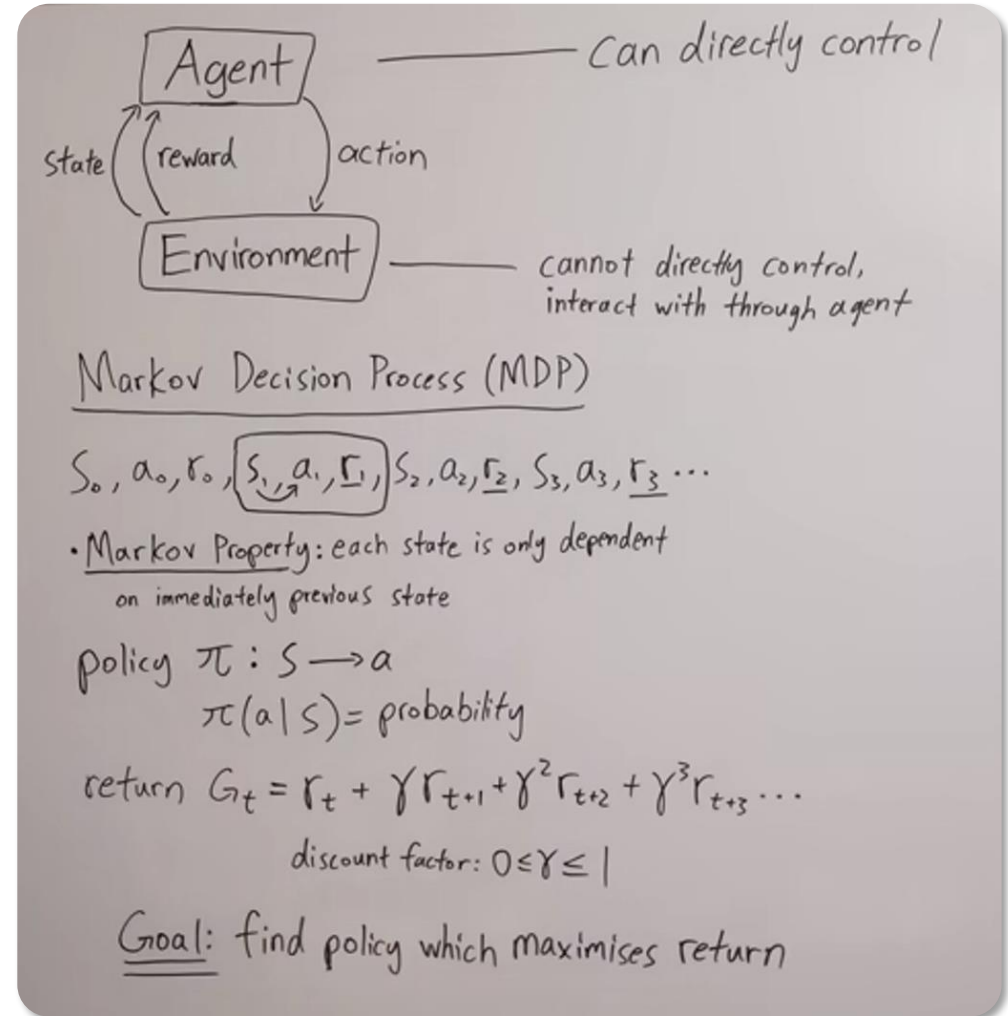 Agent
Can directly control
state
reward
action
Environment
cannot directly control,
interact with through agent
Markov Decision Process (MDP)
S₀, a₀, r₀, S₁, a₁, r₁, S₂, a₂, r₂, S₃, a₃, r₃ ...
• Markov Property: each state is only dependent
on immediately previous state
policy π : S → a
π(a|s) = probability
return Gₜ = rₜ + γrₜ₊₁ + γ²rₜ₊₂ + γ³rₜ₊₃ ...
discount factor: 0 ≤ γ ≤ 1
Goal: find policy which maximises return